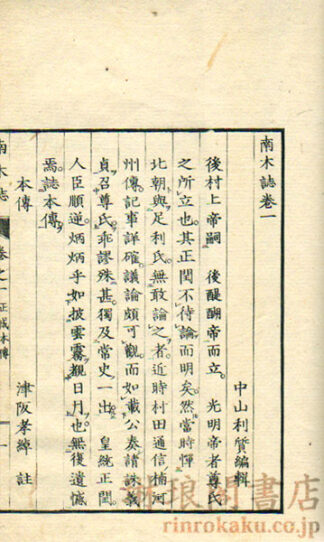 南木誌卷一
中山利質編輯
後村上帝嗣　後醍醐帝而立。　光明帝者尊氏
之所立也。其正閏不待論而明矣。然當時憚
北朝與足利氏無敢論之者。近時村田通信楠河
州傳。記事詳確。議論頗可觀。而如載公奏請誅義
貞召尊氏。乖謬殊甚。獨及當史一出。　皇統正閏。
人臣順逆。炳炳乎如披雲霧觀日月也。無復遺憾
焉。誌本傳。
本傳
津阪孝綽 註
南木誌 卷之一 正成本傳 一
琳琅閣書店
rinrokaku.co.jp